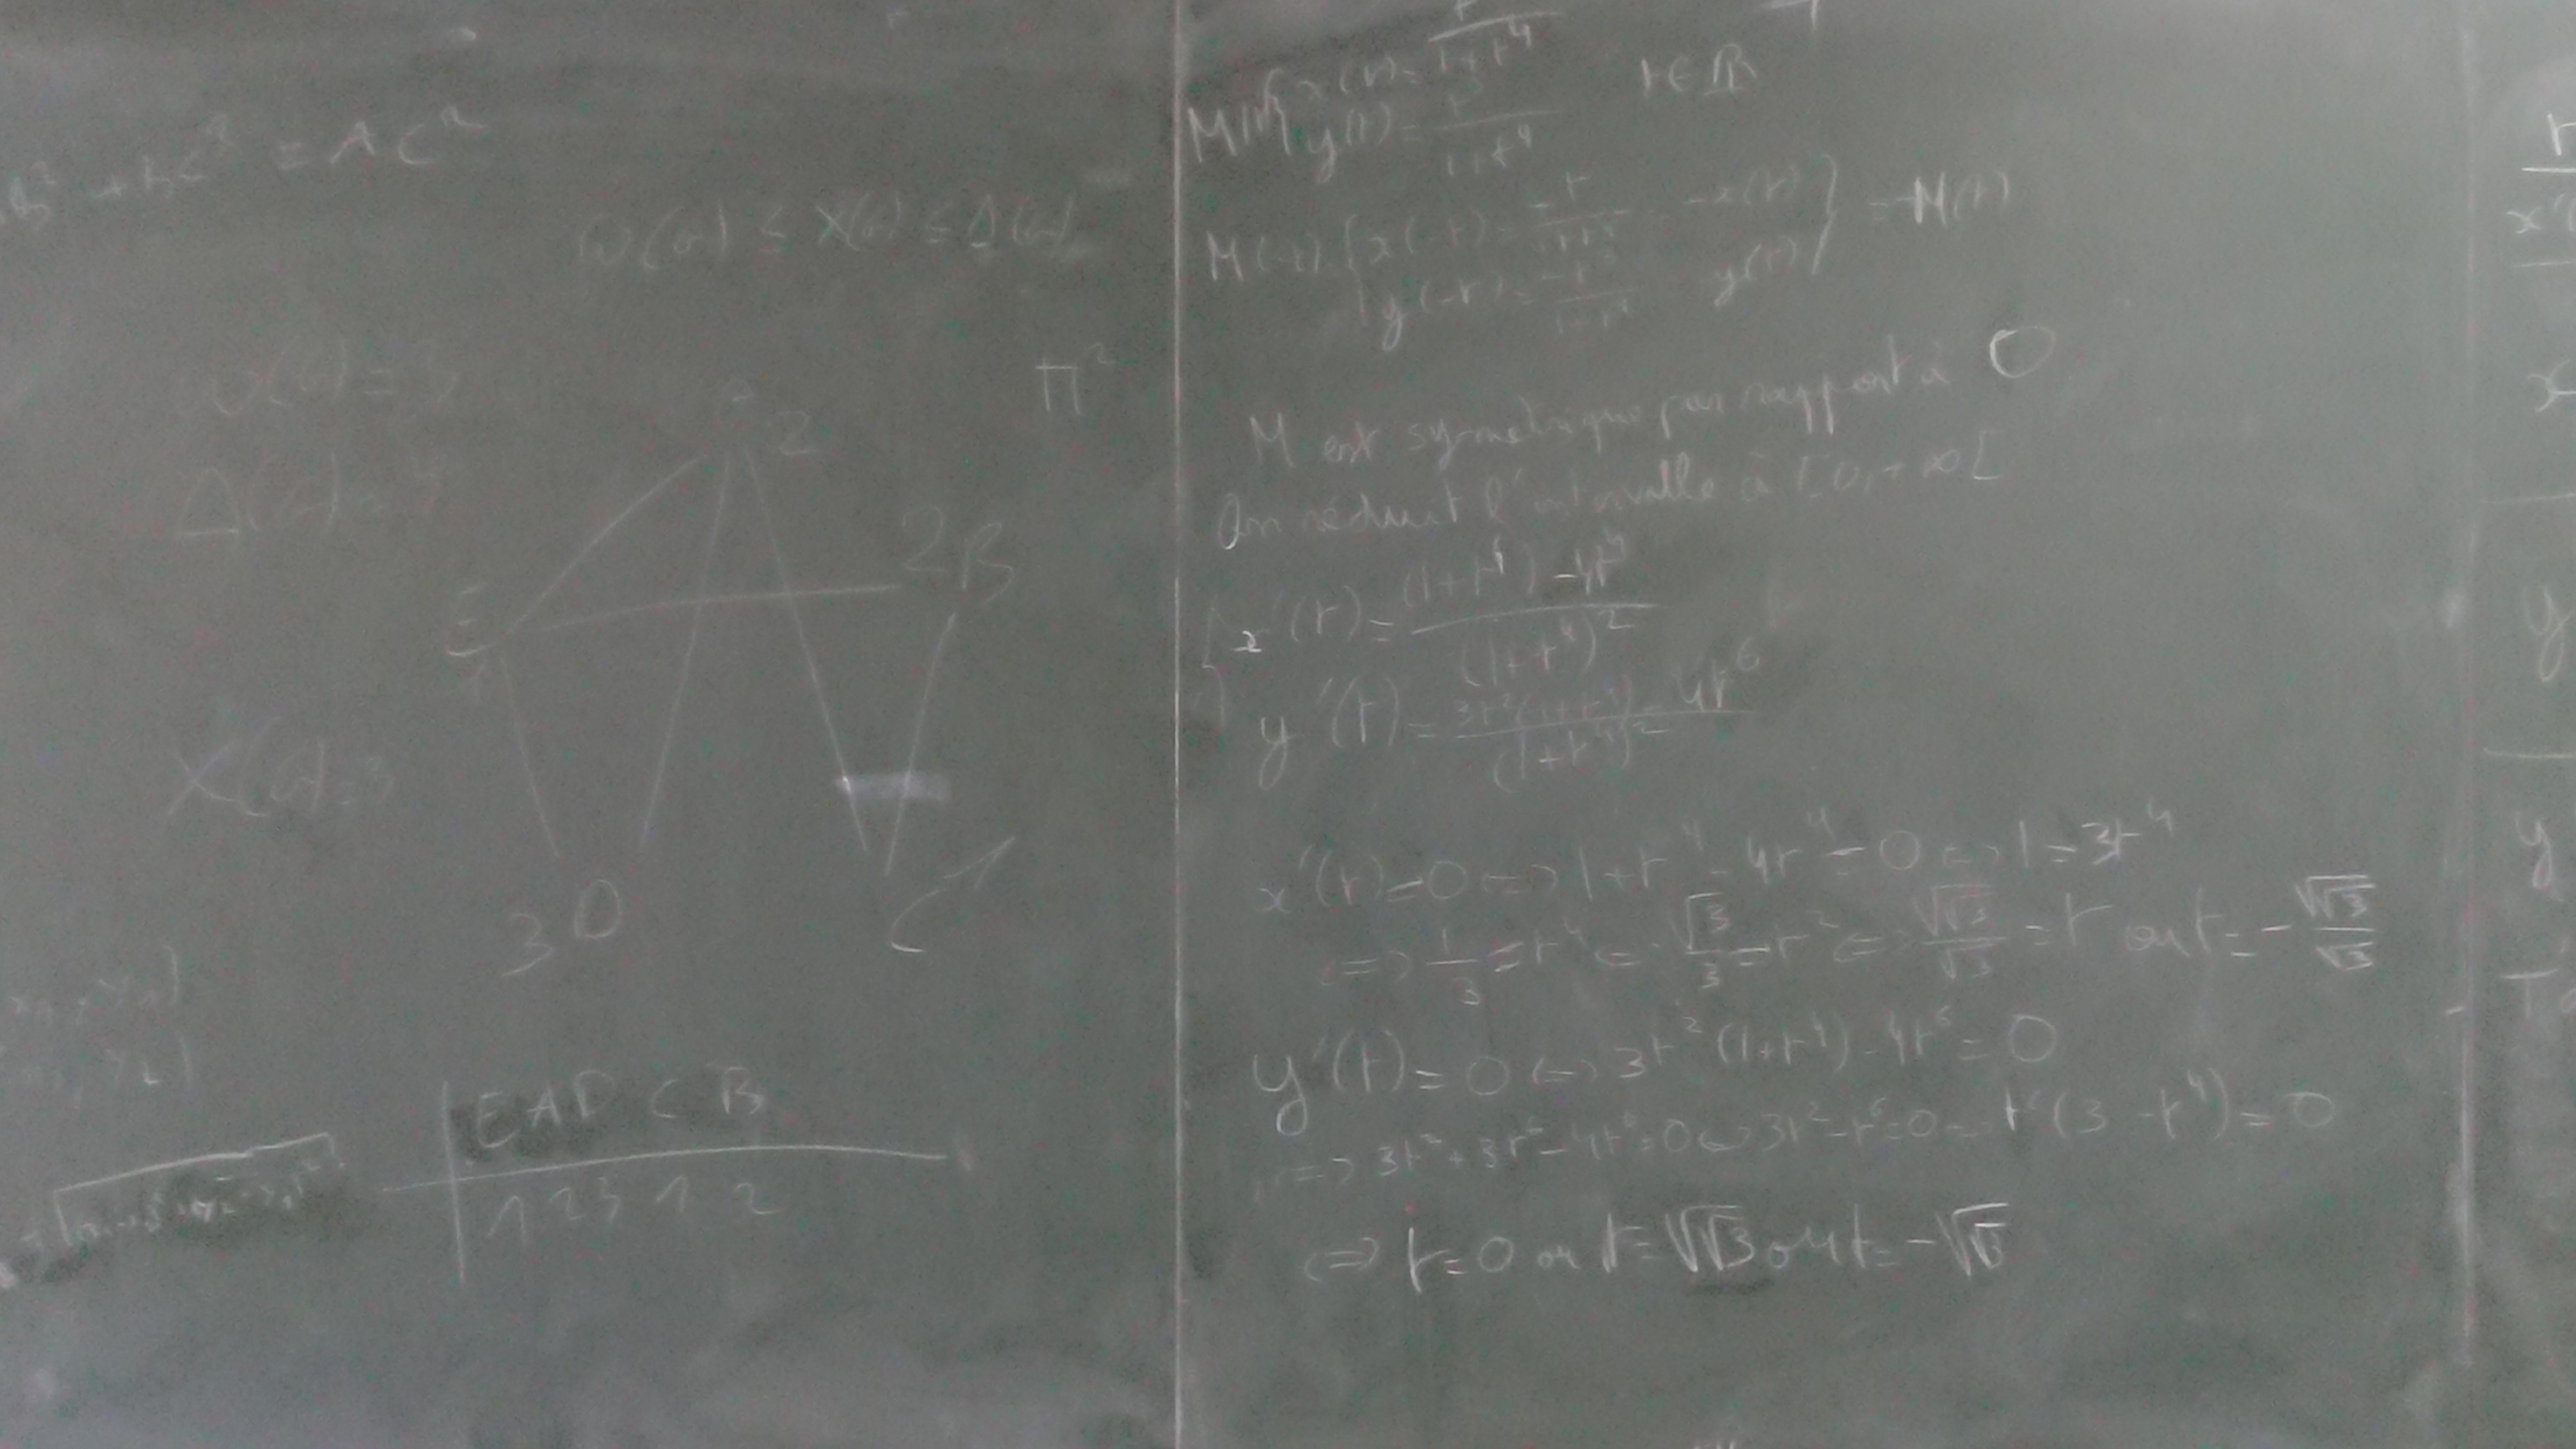 = AC²
ω(G) ≤ X(G) ≤ Δ(G)
ω(G) = 3
Δ(G) = 4
X(G) = 3
Π²
A 2
2 B
E 1
3 D
C 1
E A D C B
1 2 3 1 2
M(t) { x(t) = t/(1+t⁴)
y(t) = t³/(1+t⁴)
t ∈ ℝ
M(-t) { x(-t) = -t/(1+t⁴) = -x(t) } = -M(t)
y(-t) = -t³/(1+t⁴) = -y(t)
M est symétrique par rapport à O
On réduit l'intervalle à [0, +∞[
x'(t) = ((1+t⁴) - 4t⁴)/(1+t⁴)²
y'(t) = (3t²(1+t⁴) - 4t⁶)/(1+t⁴)²
x'(t) = 0 <=> 1+t⁴ - 4t⁴ = 0 <=> 1 = 3t⁴
<=> 1/3 = t⁴ <=> √3/3 = t² <=> √√3/√3 = t ou t = -√√3/√3
y'(t) = 0 <=> 3t²(1+t⁴) - 4t⁶ = 0
<=> 3t² + 3t⁶ - 4t⁶ = 0 <=> 3t² - t⁶ = 0 <=> t²(3 - t⁴) = 0
<=> t = 0 ou t = √√3 ou t = -√√3
t
x'(
x
y
y